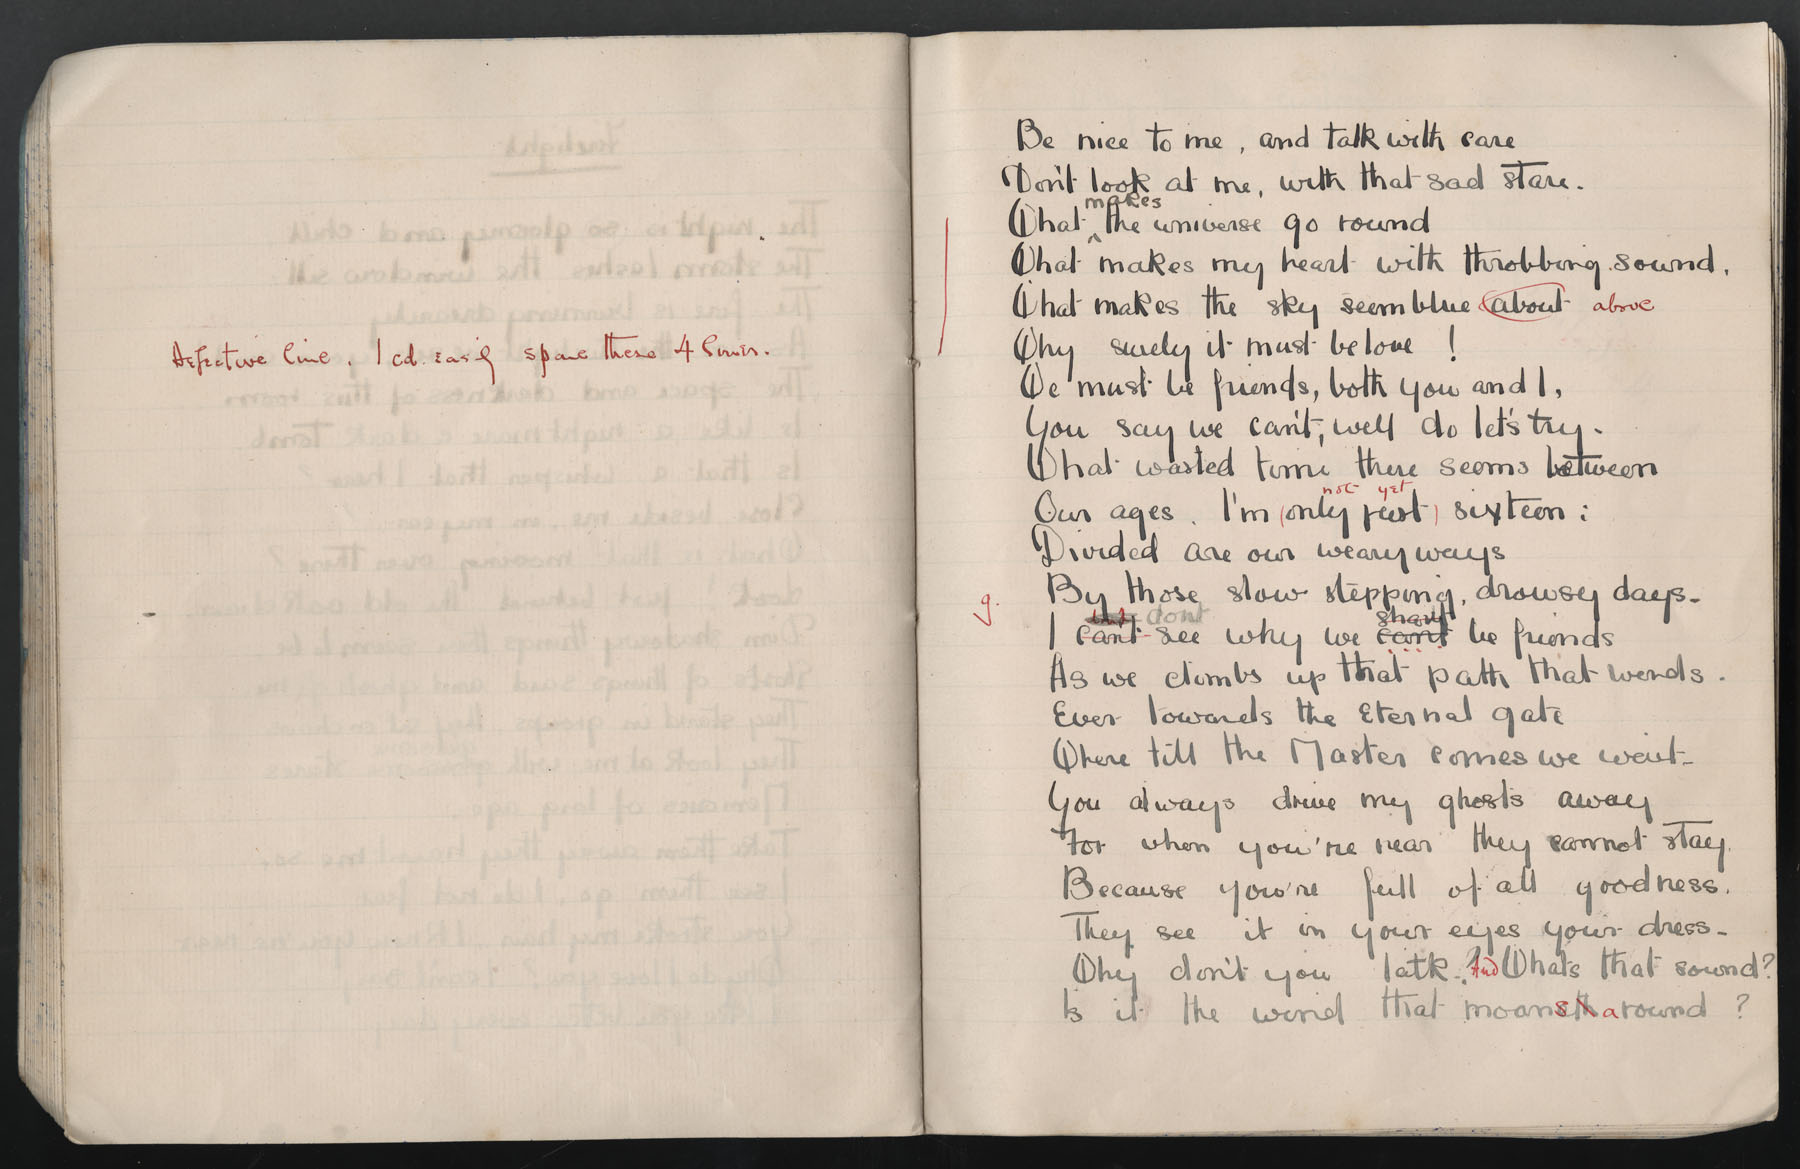 Defective line. I cd. easily spare these 4 lines.
Be nice to me, and talk with care
Don't look at me, with that sad stare.
makes
What the universe go round
What makes my heart with throbbing sound,
What makes the sky seem blue about above
Why surely it must be love!
We must be friends, both you and I,
You say we can't, well do let's try.
What wasted time there seems between
not yet
Our ages. I'm (only just) sixteen;
Divided are our weary ways
By those slow stepping, drowsy days.
g.
dont shant
I can't see why we can't be friends
As we climbs up that path that wends.
Ever towards the Eternal gate
Where till the Master comes we wait.
You always drive my ghosts away
For when you're near they cannot stay.
Because you're full of all goodness.
They see it in your eyes your dress.
Why don't you talk? And Whats that sound?
Is it the wind that moans around?